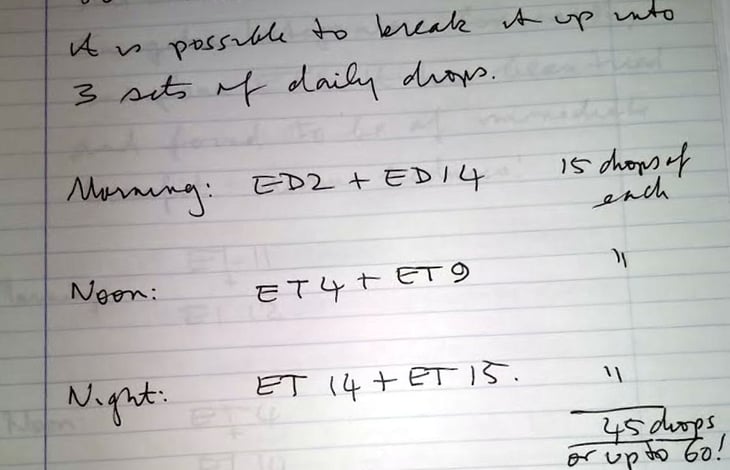 it is possible to break it up into
3 sets of daily drops.
Morning: ED2 + ED14 15 drops of
each
Noon: ET4 + ET9 "
Night: ET 14 + ET 15. "
45 drops
or up to 60!